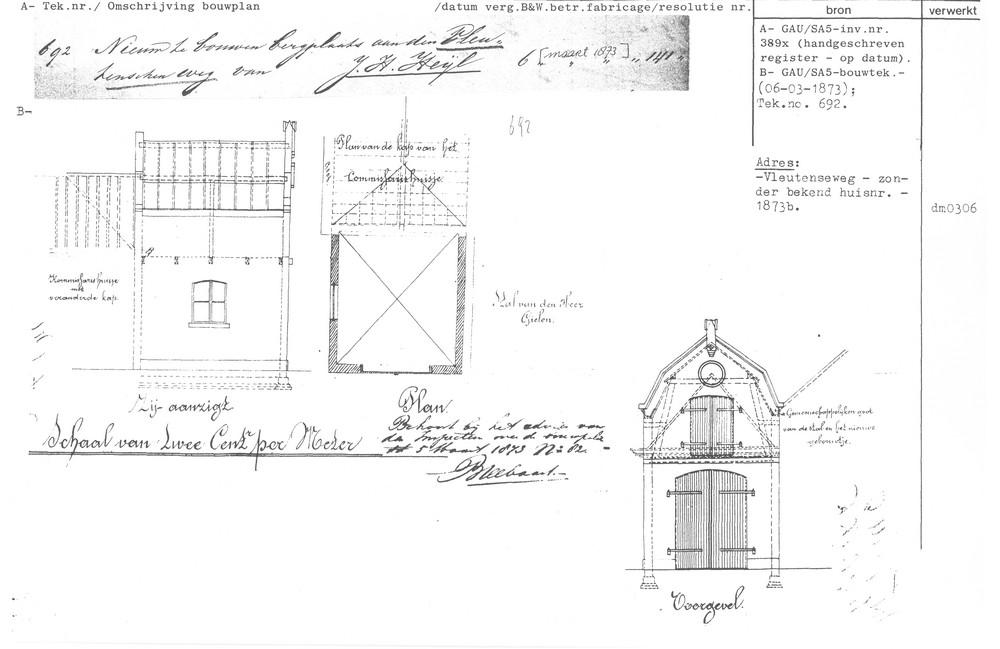 A- Tek.nr./ Omschrijving bouwplan /datum verg.B&W.betr.fabricage/resolutie nr.
bron
verwerkt
692 Nieuw te bouwen bergplaats aan den Vleu-
tenschen weg van J. H. Heijl 6 [maart 1873] „ 141 „
A- GAU/SA5-inv.nr.
389x (handgeschreven
register - op datum).
B- GAU/SA5-bouwtek.-
(06-03-1873);
Tek.no. 692.
B-
692
Adres:
-Vleutenseweg - zon-
der bekend huisnr. -
1873b.
dm0306
Plan van de kap van het
Commissarishuisje
Kommissarishuisje
met
veranderde kap.
Stal van den Heer
Gielen.
Zij-aanzigt
Plan.
Schaal van Twee Centr per Meter
Behoort bij het advies van
den Inspecteur over de
5 Maart 1873 No
Gemeenschappelijken goot
van de stal en het nieuwe
gebouwtje.
Voorgevel.